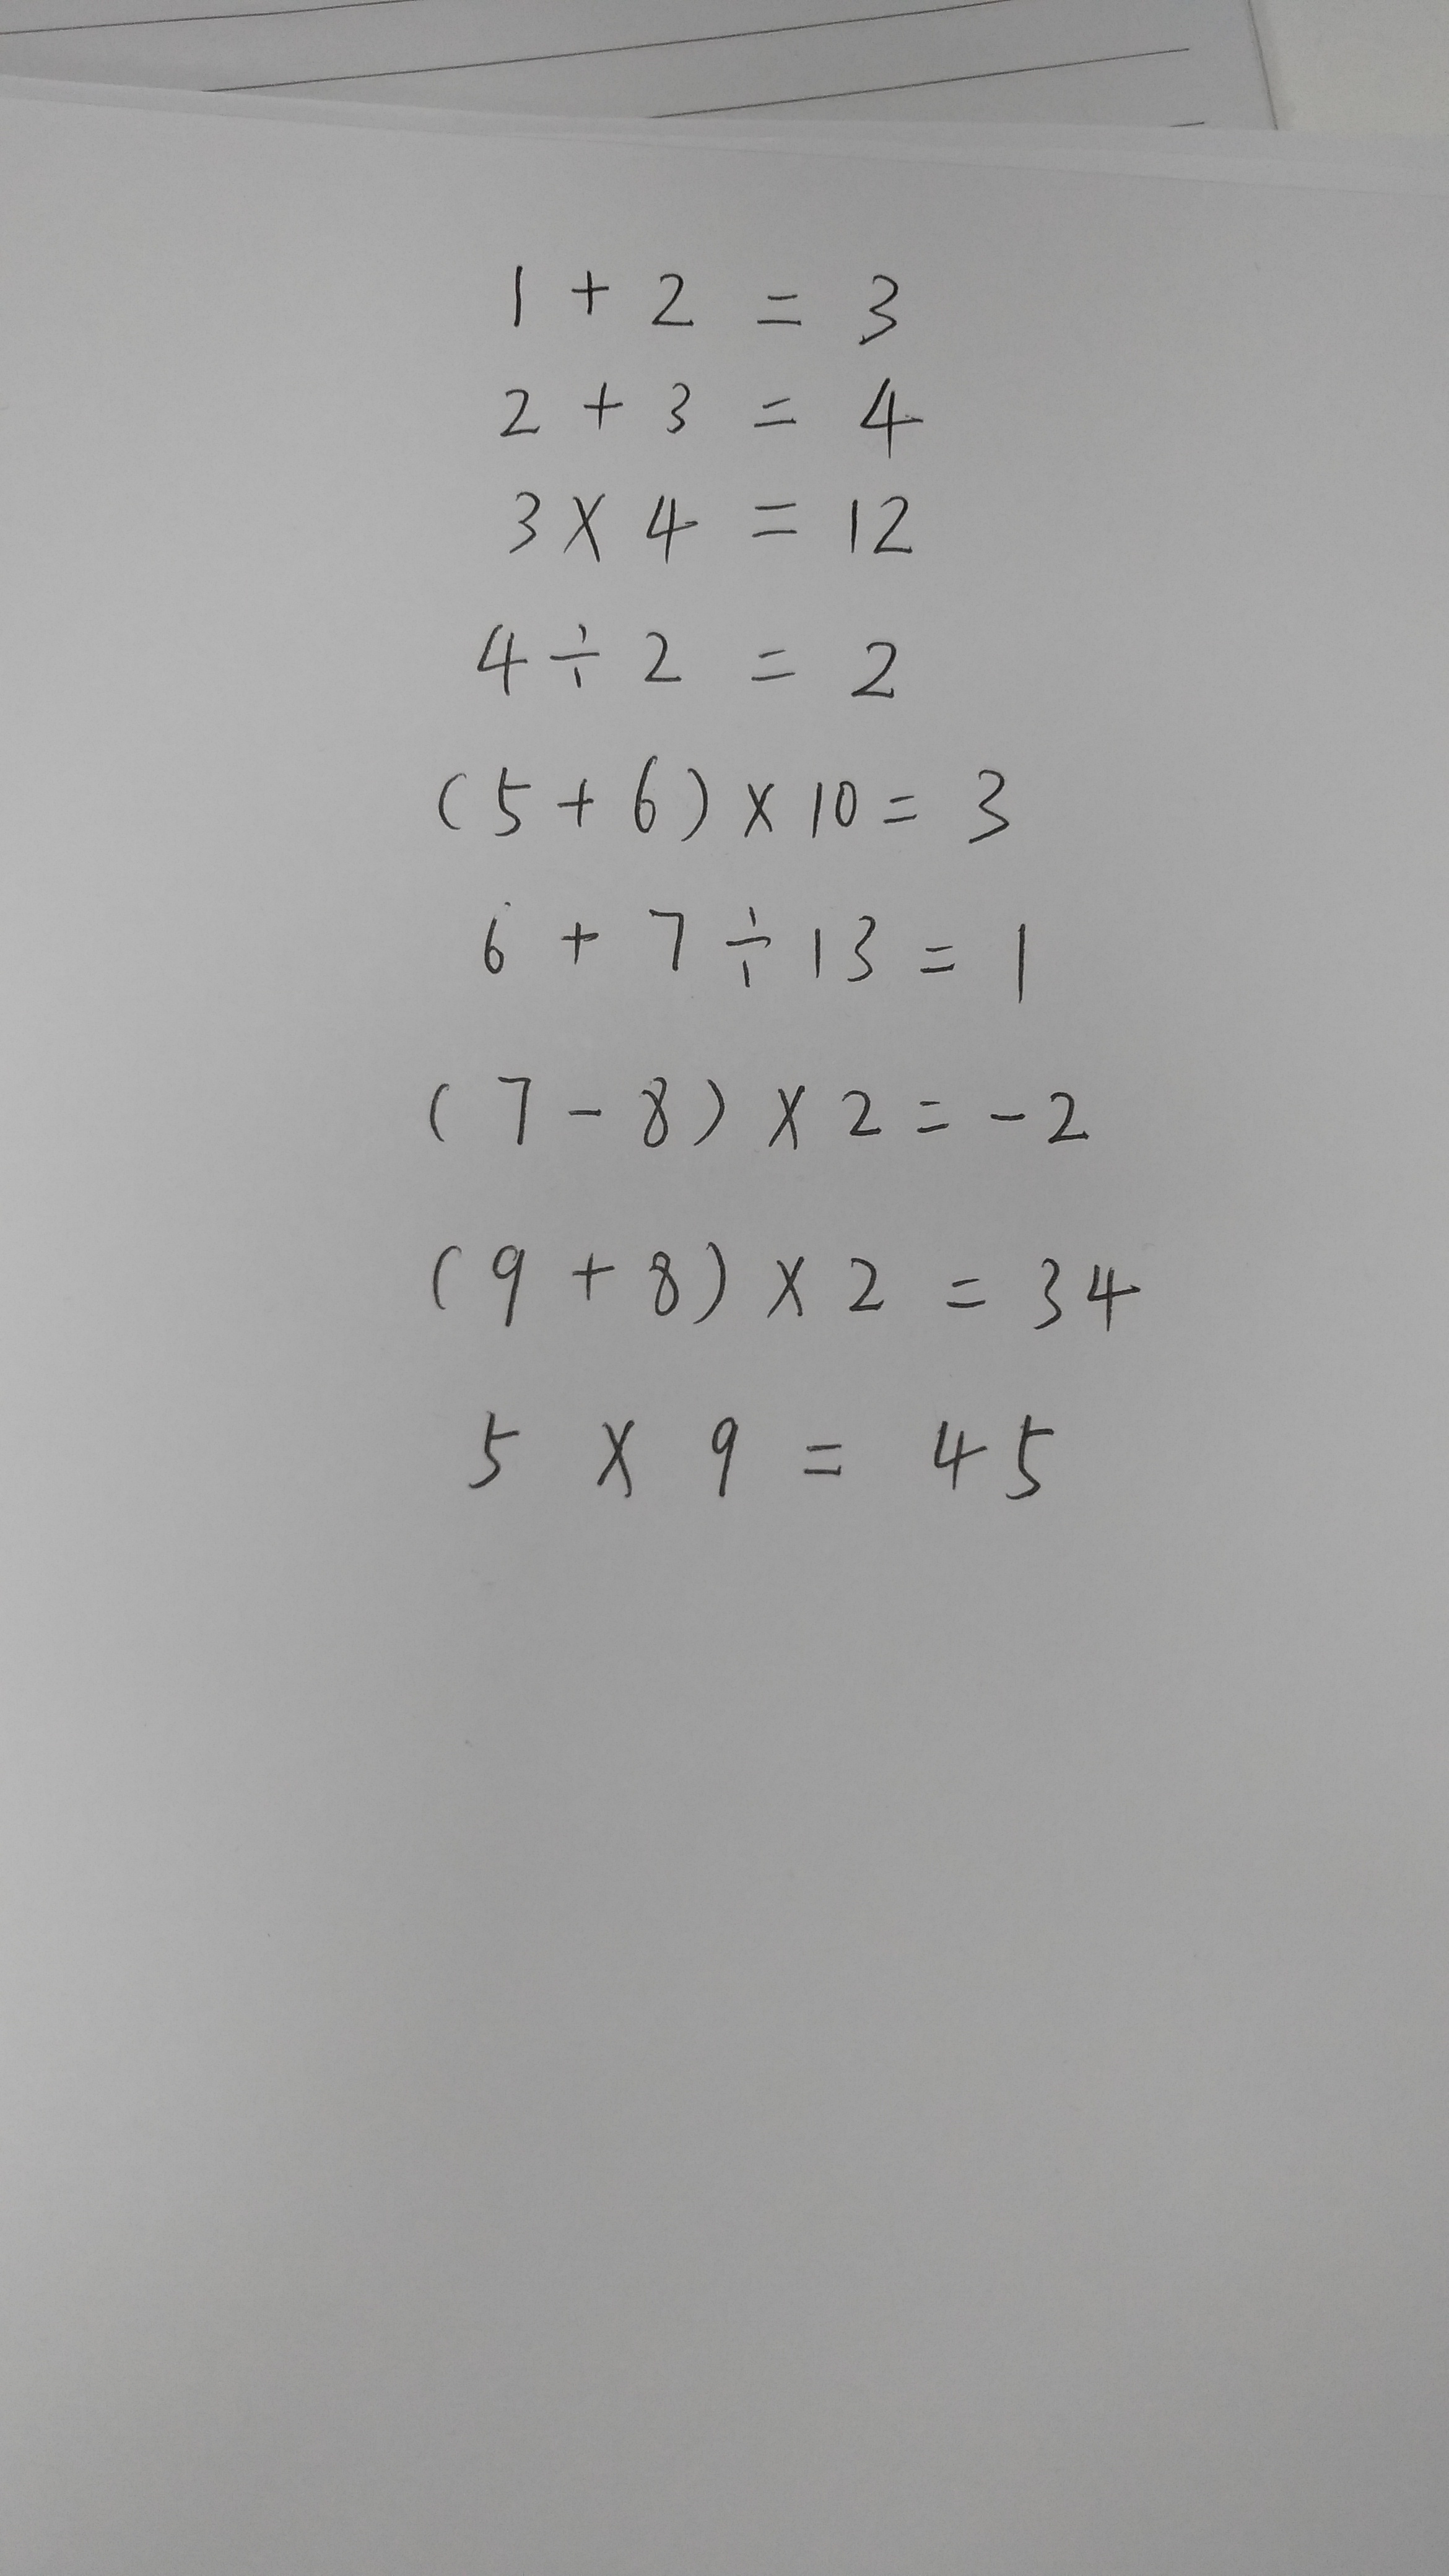 1 + 2 = 3
2 + 3 = 4
3 × 4 = 12
4 ÷ 2 = 2
(5 + 6) × 10 = 3
6 + 7 ÷ 13 = 1
(7 - 8) × 2 = -2
(9 + 8) × 2 = 34
5 × 9 = 45